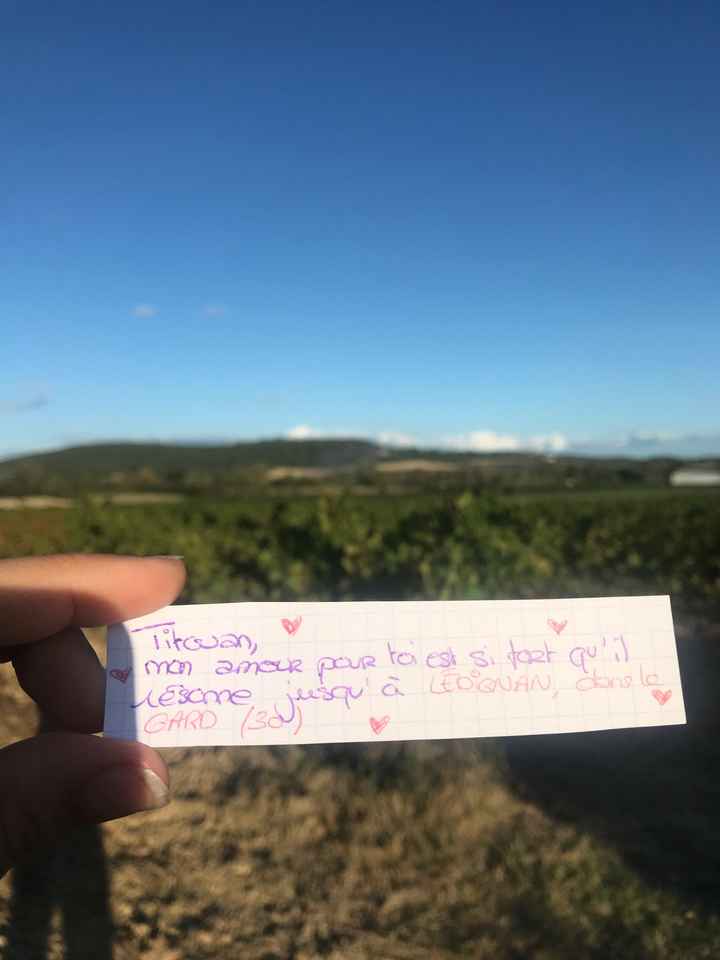 Titouan,
mon amour pour toi est si fort qu'il
résonne jusqu'à LEDIGNAN, dans le
GARD (30)